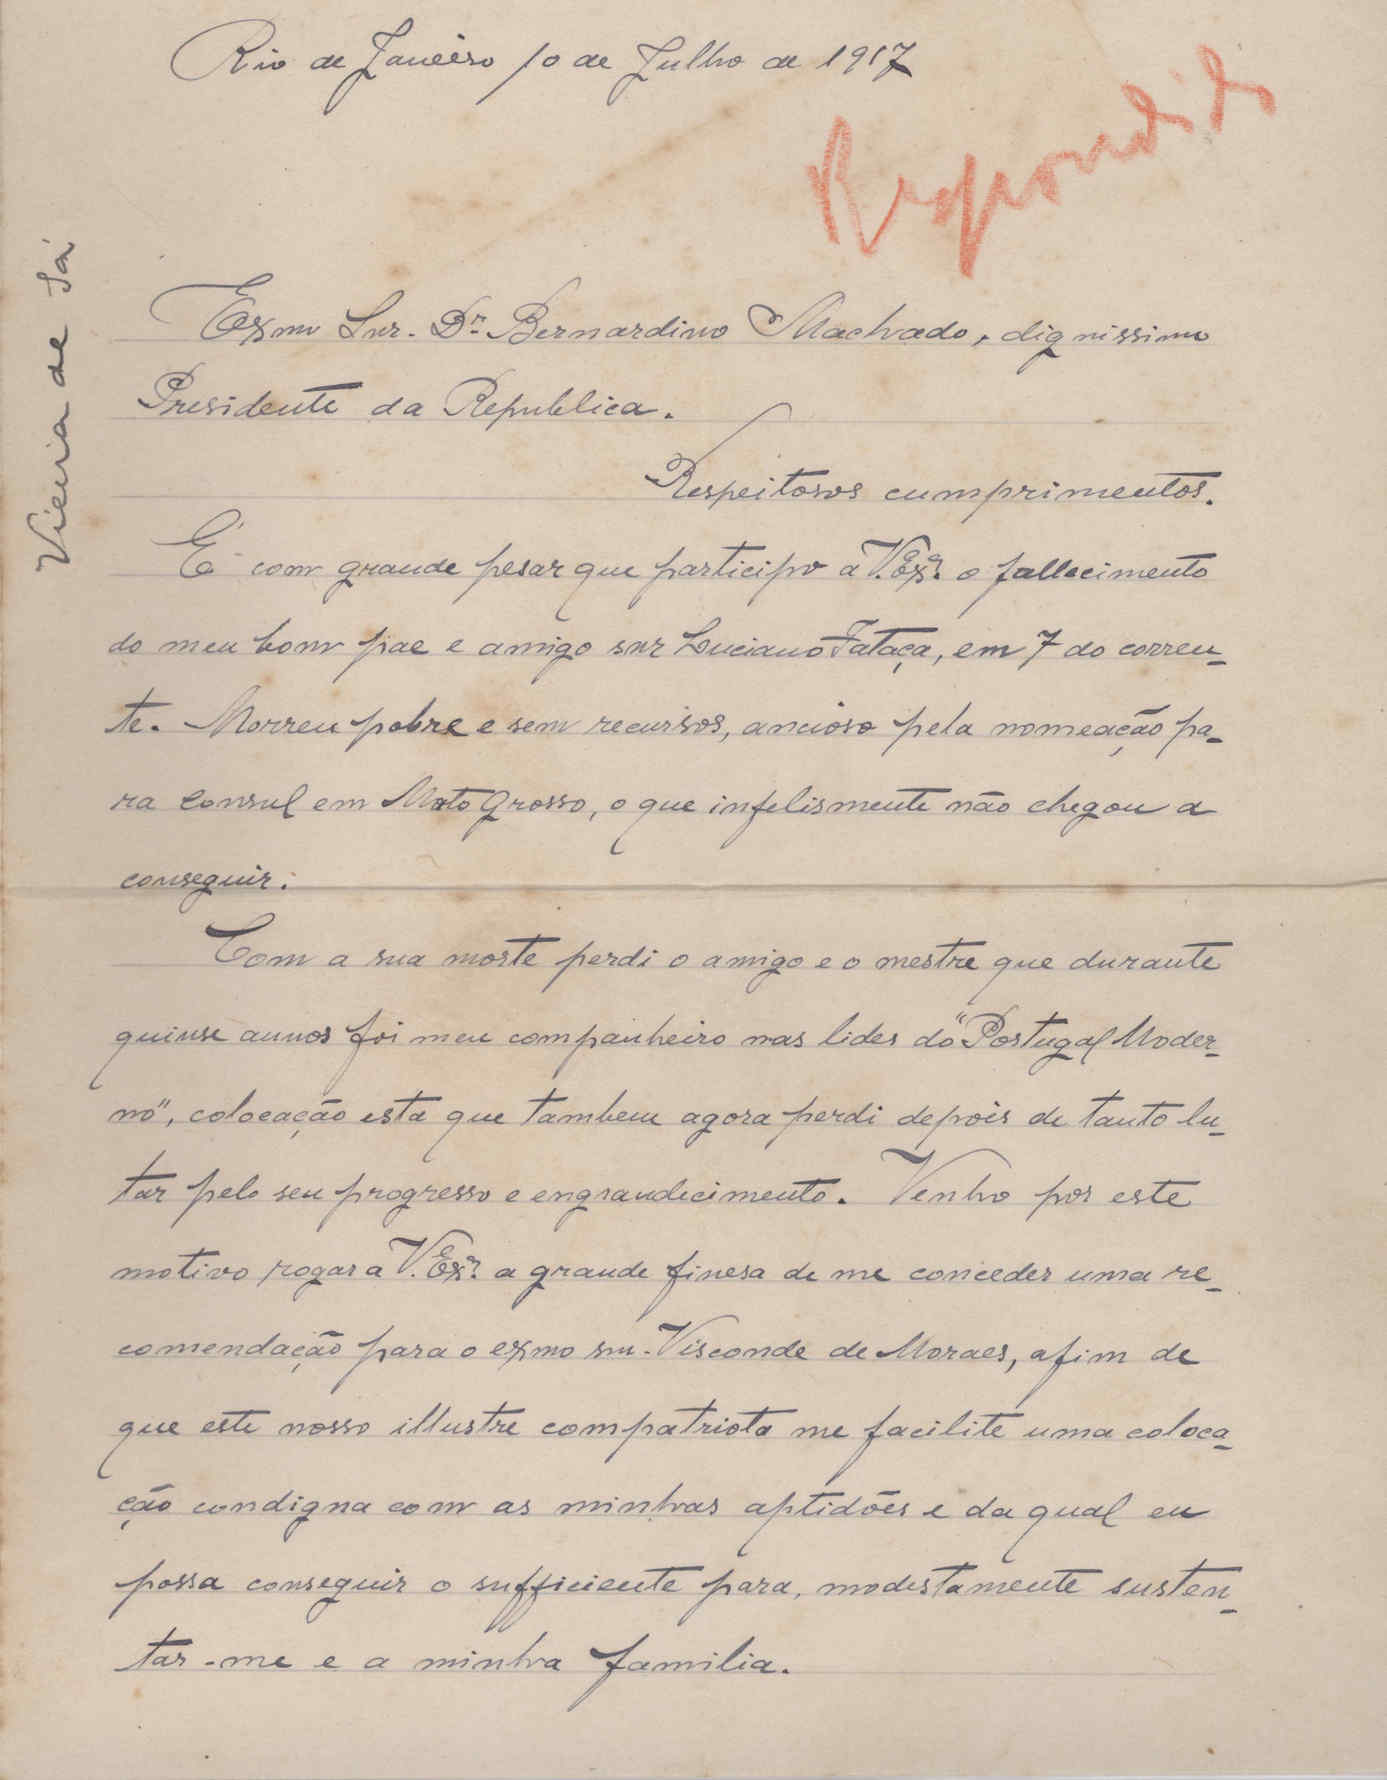 Rio de Janeiro 10 de Julho de 1917
Respondido
Vieira de Sá
Exmo Snr. Dr. Bernardino Machado, dignissimo
Presidente da Republica.
Respeitosos cumprimentos.
É com grande pesar que participo a V. Exª. o fallecimento
do meu bom pae e amigo snr Luciano Fataça, em 7 do corren-
te. Morreu pobre e sem recursos, ancioso pela nomeação pa-
ra consul em Mato Grosso, o que infelismente não chegou a
conseguir.
Com a sua morte perdi o amigo e o mestre que durante
quinse annos foi meu companheiro nas lides do "Portugal Moder-
no", colocação esta que tambem agora perdi depois de tanto lu-
tar pelo seu progresso e engrandecimento. Venho por este
motivo rogar a V. Exª. a grande finesa de me conceder uma re-
comendação para o exmo snr. Visconde de Moraes, afim de
que este nosso illustre compatriota me facilite uma coloca-
ção condigna com as minhas aptidões e da qual eu
possa conseguir o sufficiente para, modestamente susten-
tar-me e a minha familia.